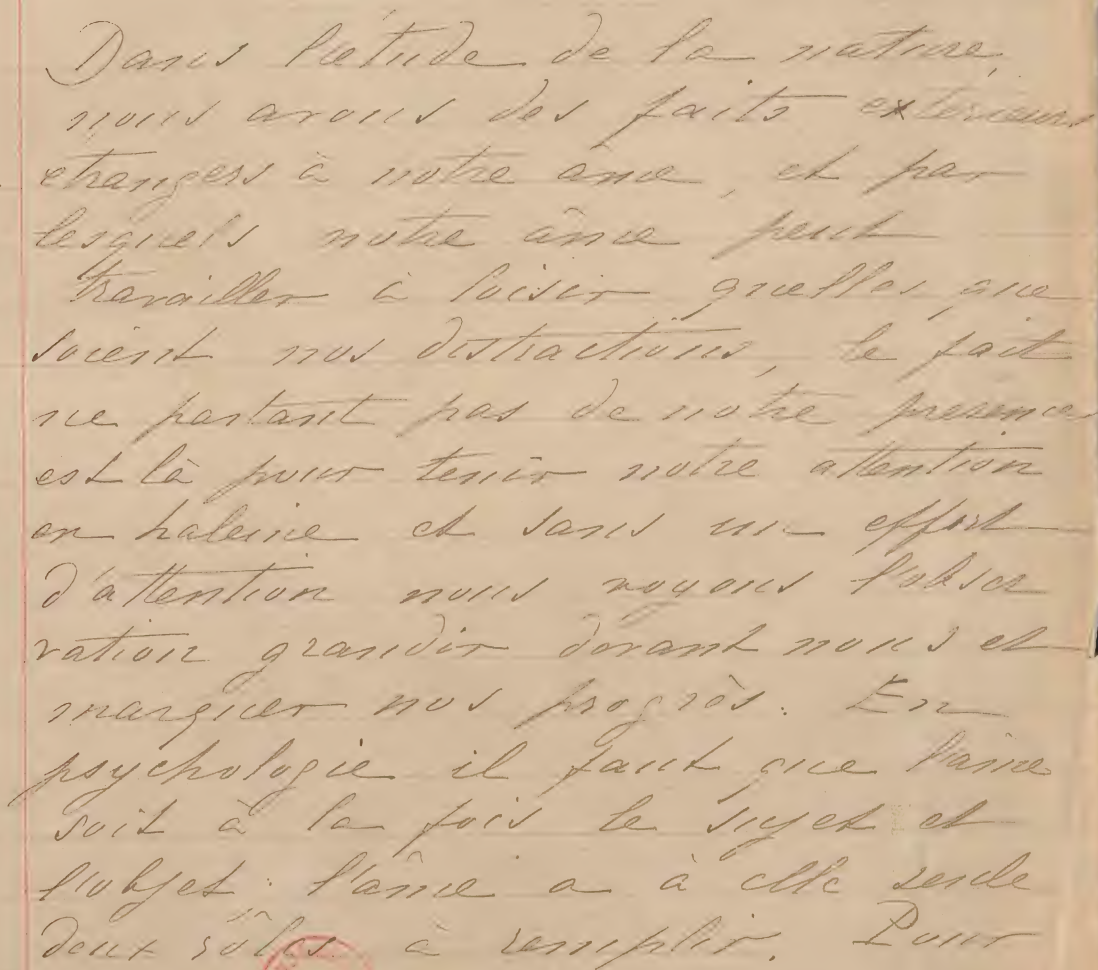 Dans l'étude de la nature,
nous avons des faits extérieurs
étrangers à notre âme, et par
lesquels notre âme peut
travailler à loisir quelles que
soient nos distractions, le fait
ne partant pas de notre presence
est là pour tenir notre attention
en haleine et sans un effort
d'attention nous voyons l'obser
vation grandir devant nous et
marquer nos progrès. En
psychologie il faut que l'âme
soit à la fois le sujet et
l'objet : l'âme a à elle seule
deux rôles à remplir. Pour